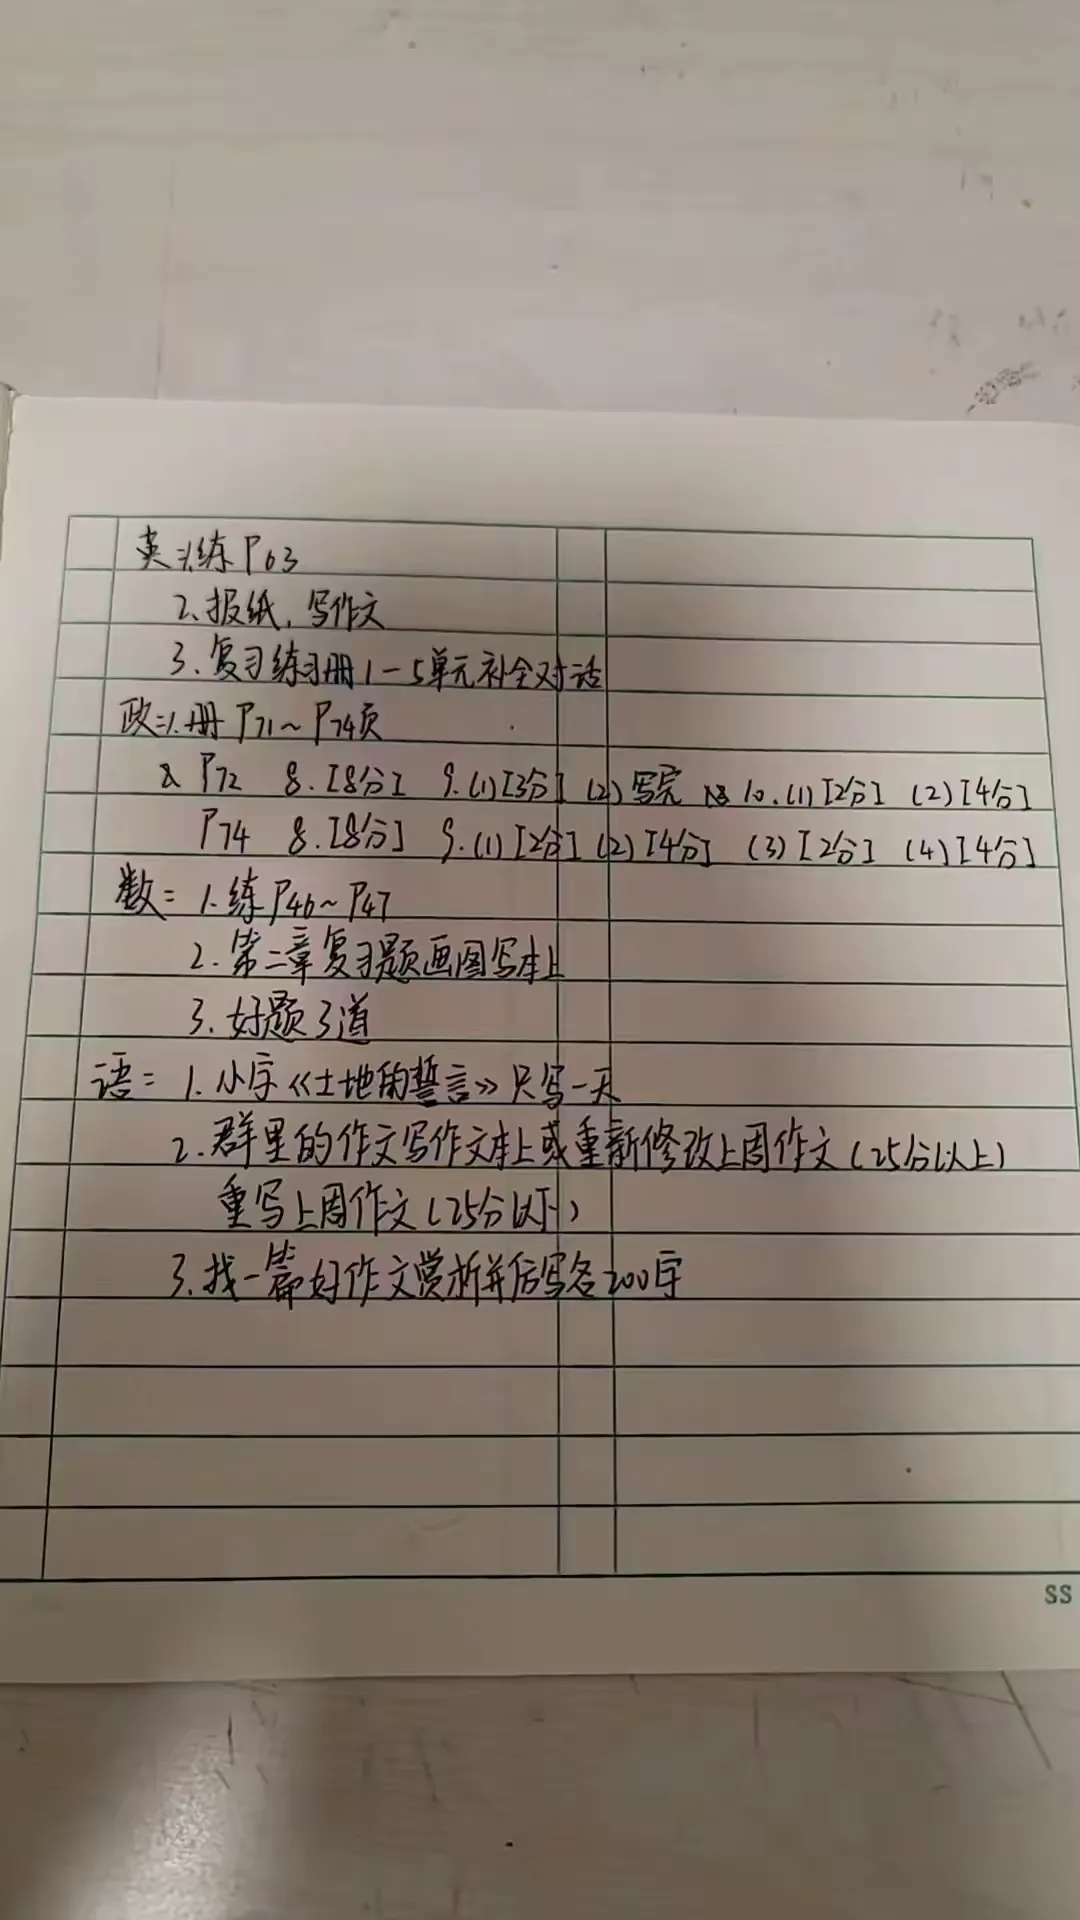 英:1.练P63
2.报纸,写作文
3.复习练习册1-5单元补全对话
政:1.册P71~P74页
2 P72 8.[8分] 9.(1)[3分] (2)写完 10.(1)[2分] (2)[4分]
P74 8.[8分] 9.(1)[2分] (2)[4分] (3)[2分] (4)[4分]
数:1.练P46~P47
2.第二章复习题画图写本上
3.好题3道
语:1.小字《土地的誓言》只写一天
2.群里的作文写作文本上或重新修改上周作文(25分以上)
重写上周作文(25分以下)
3.找一篇好作文赏析并仿写各200字
SS